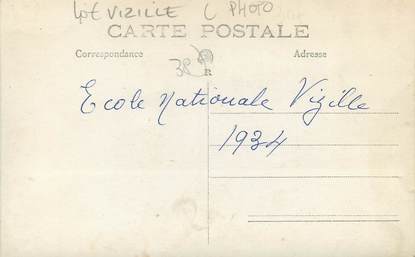 Lot VIZILLE C PHOTO
CARTE POSTALE
Correspondance Adresse
38
R
Ecole Nationale Vizille
1934